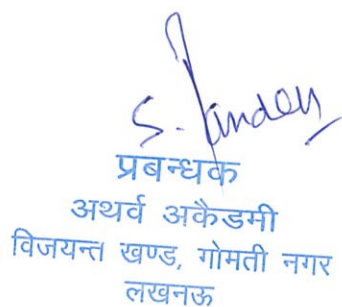 S. Pandey
प्रबन्धक
अथर्व अकैडमी
विजयन्त खण्ड, गोमती नगर
लखनऊ